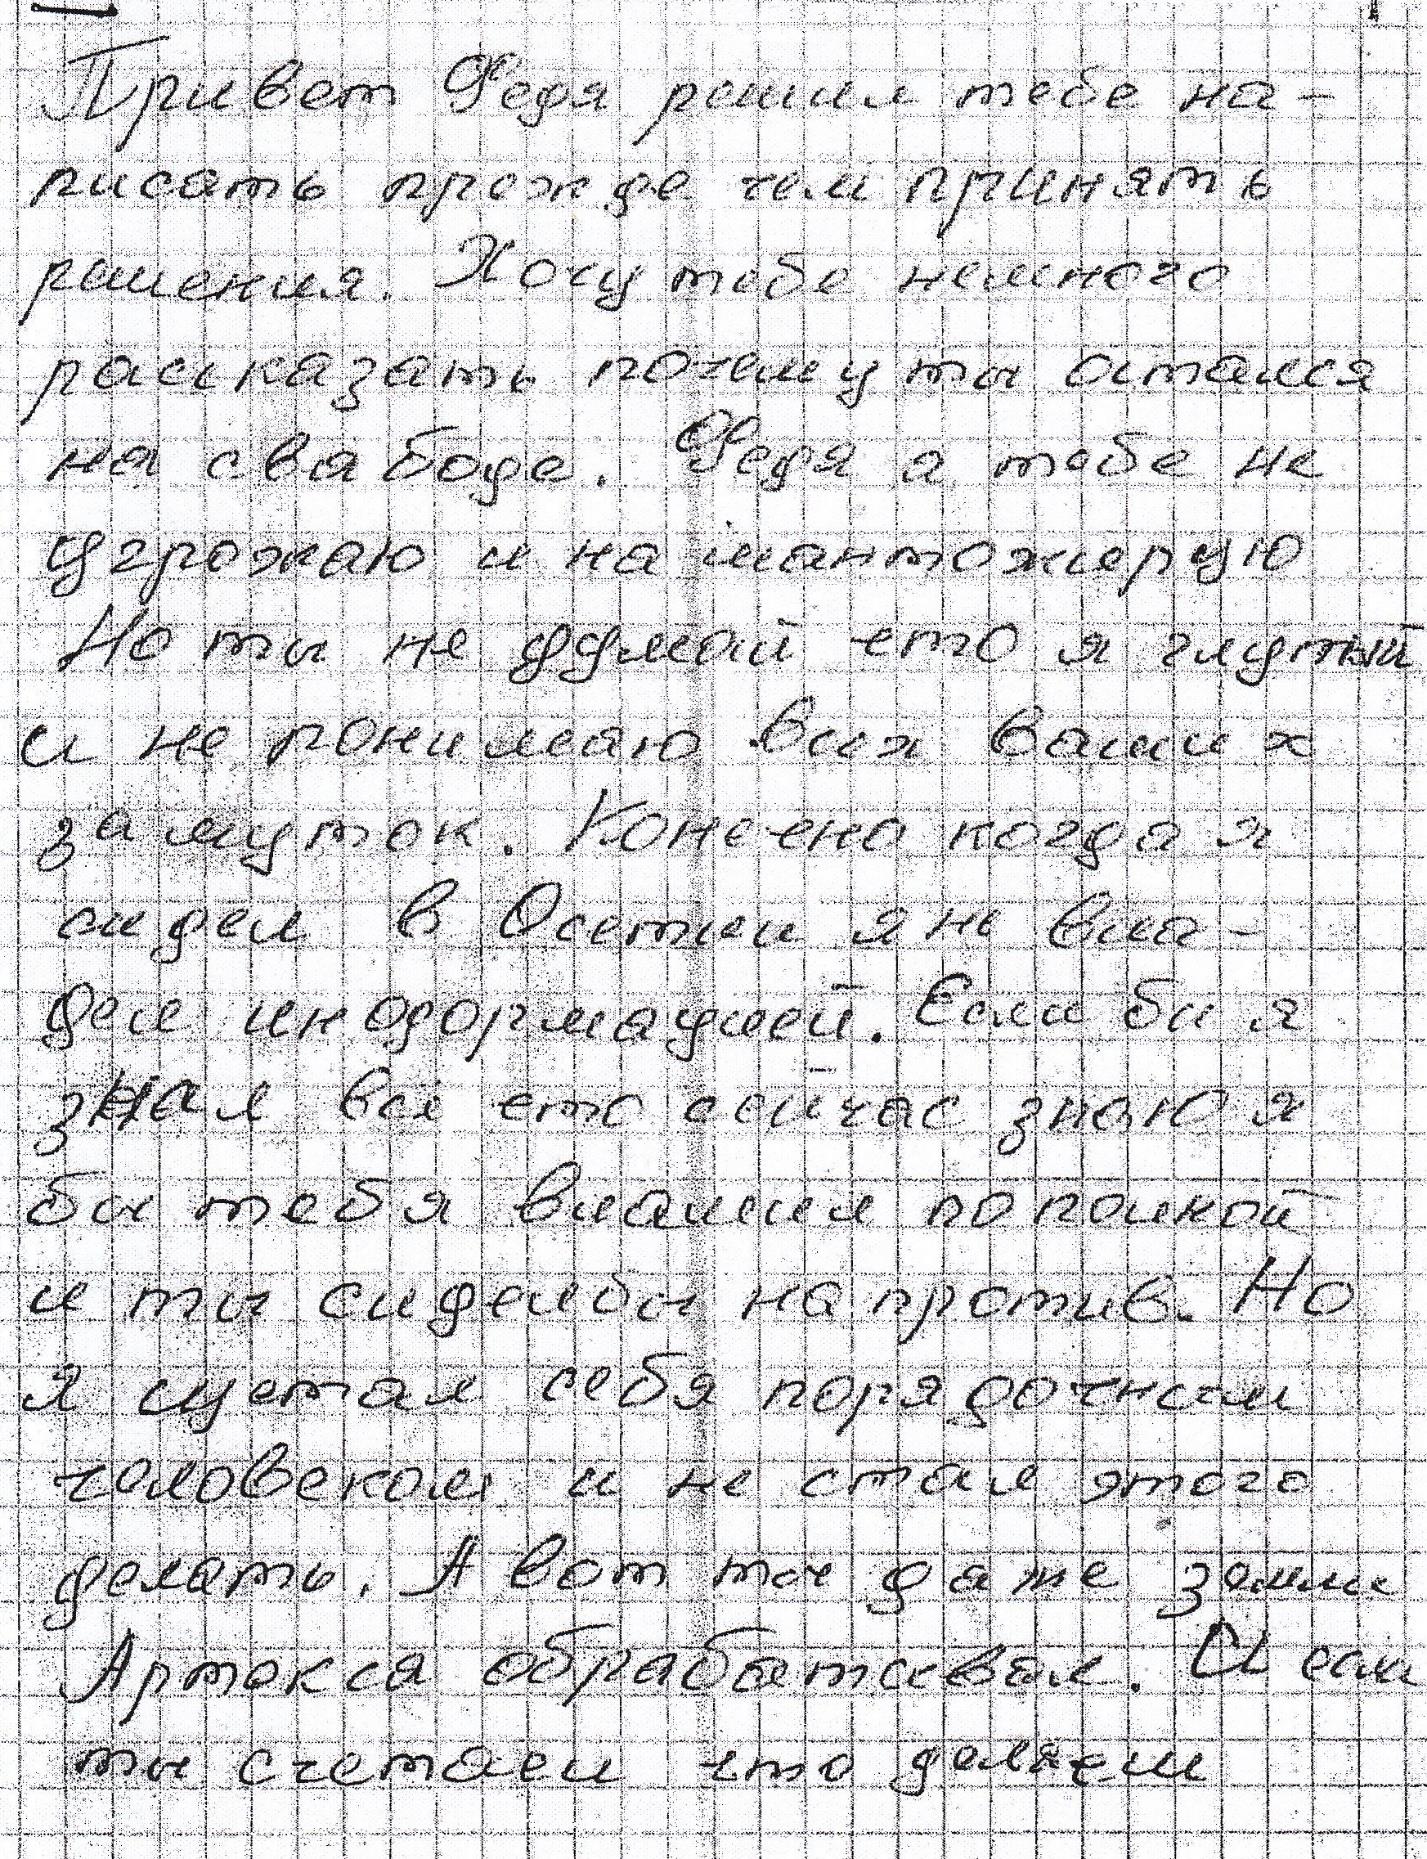 Привет Федя решил тебе на-
писать прежде чем принять
решения. Хочу тебе немного
рассказать почему ты остался
на свабоде. Федя я тебе не
угрожаю и на шантожирую
Но ты не думай что я глупый
и не понимаю всих ваших
замуток. Конечено когда я
сидел в Осетии я не вла-
дел информацией. Если бы я
знал всё што сейчас знаю я
бы тебя вламил по полной
и ты сиделбы на против. Но
я щетал себя порядочным
человеком и не стал этого
делать. А вот ты даже земли
обрабатывал. И если
ты счетаеш что делаеш